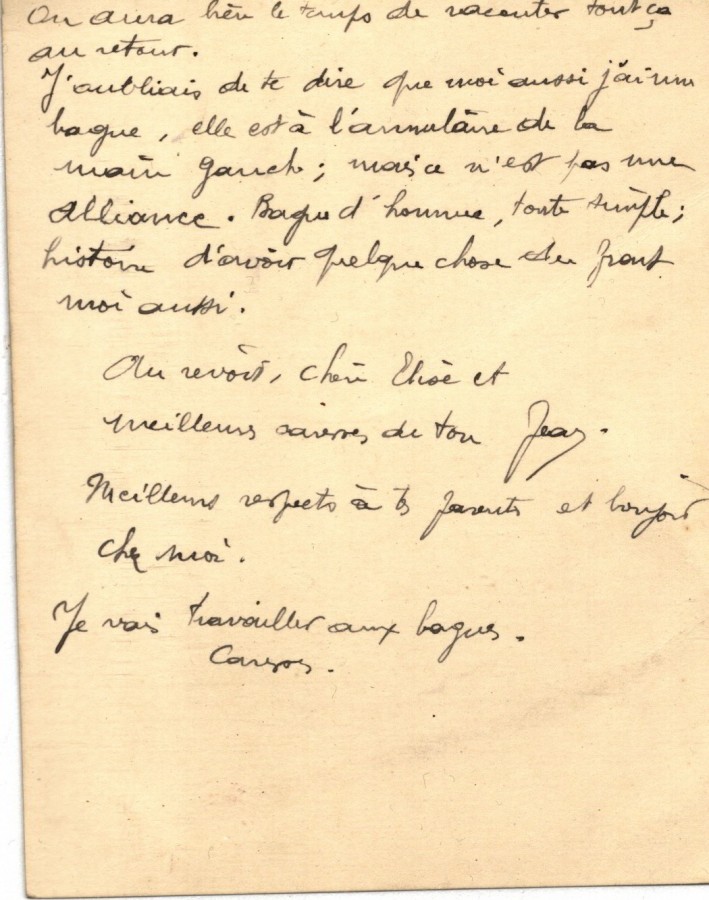 On aura bien le temps de raconter tout ça
au retour.
J'oubliais de te dire que moi aussi j'ai une
bague, elle est à l'annulaire de la
main gauche; mais ce n'est pas une
alliance. Bague d'homme, toute simple;
histoire d'avoir quelque chose du front
moi aussi.
Au revoir, chère et
meilleures caresses de ton Jean.
Meilleurs respects à tes parents et bonjour
chez moi.
Je vais travailler aux bagues.
Caresses.